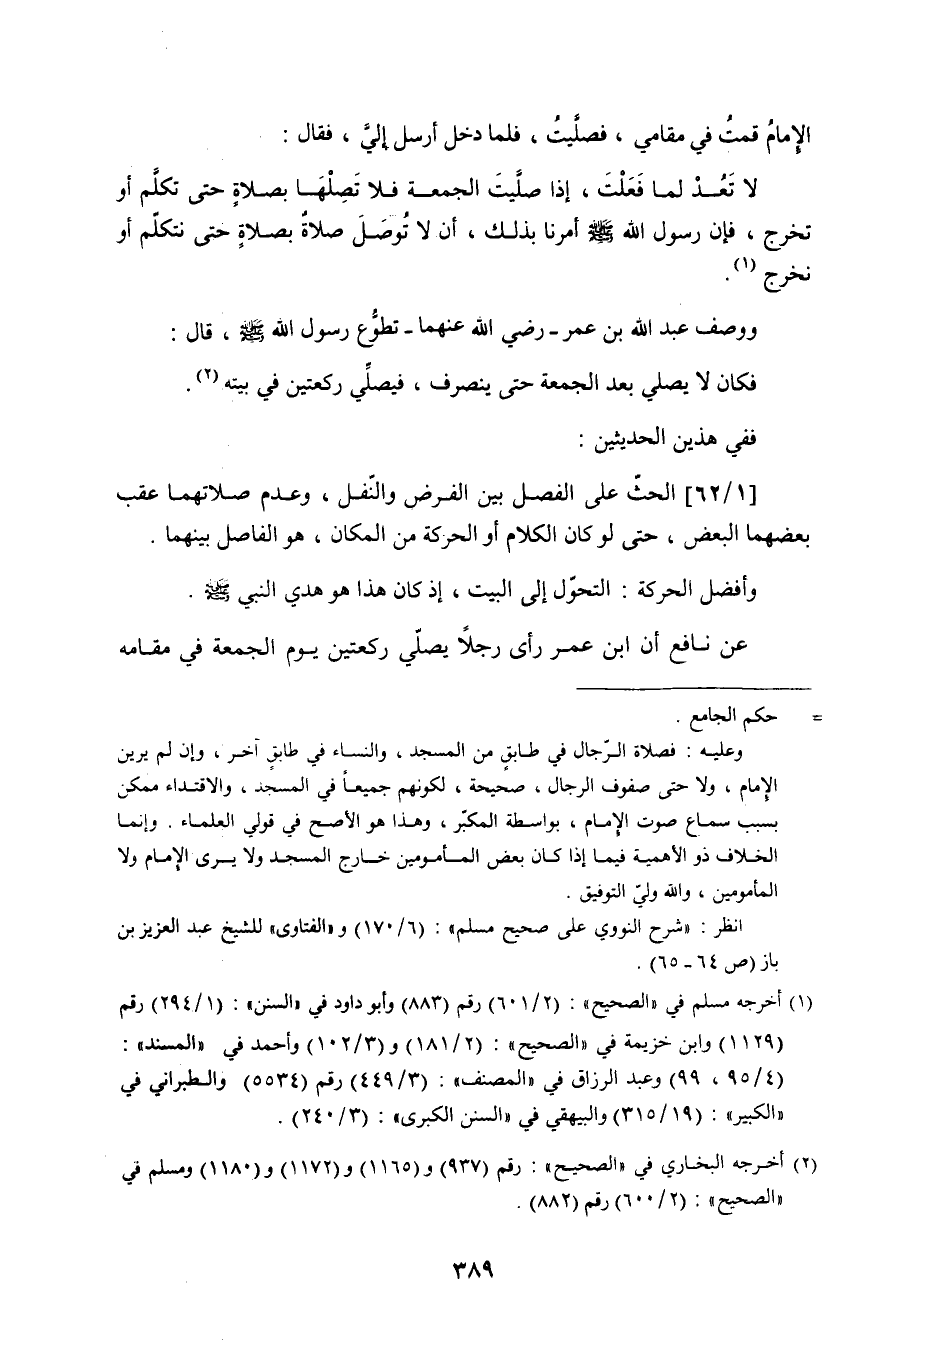 الإمامُ قمتُ في مقامي ، فصلَّيتُ ، فلما دخل أرسل إليَّ ، فقال :
لا تَعُـدْ لمـا فَعَلْتَ ، إذا صلَّيتَ الجمعـة فـلا تَصِلْهَـا بصـلاةٍ حتى تكلَّم أو
تخرج ، فإن رسول الله ﷺ أمرنا بذلـك ، أن لا تُوصَـلَ صلاةٌ بصـلاةٍ حتى نتكلّم أو
نخرج (١).
ووصف عبد الله بن عمر ـ رضي الله عنهما ـ تطوُّع رسول الله ﷺ ، قال :
فكان لا يصلي بعد الجمعة حتى ينصرف ، فيصلِّي ركعتين في بيته (٢) .
ففي هذين الحديثين :
[٦٢/١] الحثّ على الفصل بين الفـرض والنّفـل ، وعـدم صـلاتهمـا عقب
بعضهما البعض ، حتى لو كان الكلام أو الحركة من المكان ، هو الفاصل بينهما .
وأفضل الحركة : التحوّل إلى البيت ، إذ كان هذا هو هدي النبي ﷺ .
عن نـافع أن ابن عمـر رأى رجلاً يصلّي ركعتين يـوم الجمعة في مقـامه
= حكم الجامع .
وعليـه : فصلاة الـرّجال في طـابقٍ من المسجد ، والنسـاء في طابقٍ آخـر ، وإن لم يرين
الإمام ، ولا حتى صفوف الرجال ، صحيحة ، لكونهم جميعـاً في المسجد ، والاقتـداء ممكن
بسبب سماع صوت الإمـام ، بواسطة المكبّر ، وهـذا هو الأصح في قولي العلمـاء . وإنمـا
الخلاف ذو الأهميـة فيمـا إذا كـان بعض المـأمـومين خـارج المسجد ولا يـرى الإمـام ولا
المأمومين ، والله وليّ التوفيق .
انظر : «شرح النووي على صحيح مسلم» : (١٧٠/٦) و «الفتاوى» للشيخ عبد العزيز بن
باز (ص ٦٤ ـ ٦٥) .
(١) أخرجه مسلم في «الصحيح» : (٦٠١/٢) رقم (٨٨٣) وأبو داود في «السنن» : (٢٩٤/١) رقم
(١١٢٩) وابن خزيمة في «الصحيح» : (١٨١/٢) و (١٠٢/٣) وأحمد في «المسند» :
(٩٥/٤ ، ٩٩) وعبد الرزاق في «المصنف» : (٤٤٩/٣) رقم (٥٥٣٤) والـطبراني في
«الكبير» : (٣١٥/١٩) والبيهقي في «السنن الكبرى» : (٢٤٠/٣) .
(٢) أخـرجه البخـاري في «الصحيح» : رقم (٩٣٧) و (١١٦٥) و (١١٧٢) و (١١٨٠) ومسلم في
«الصحيح» : (٦٠٠/٢) رقم (٨٨٢) .
٣٨٩